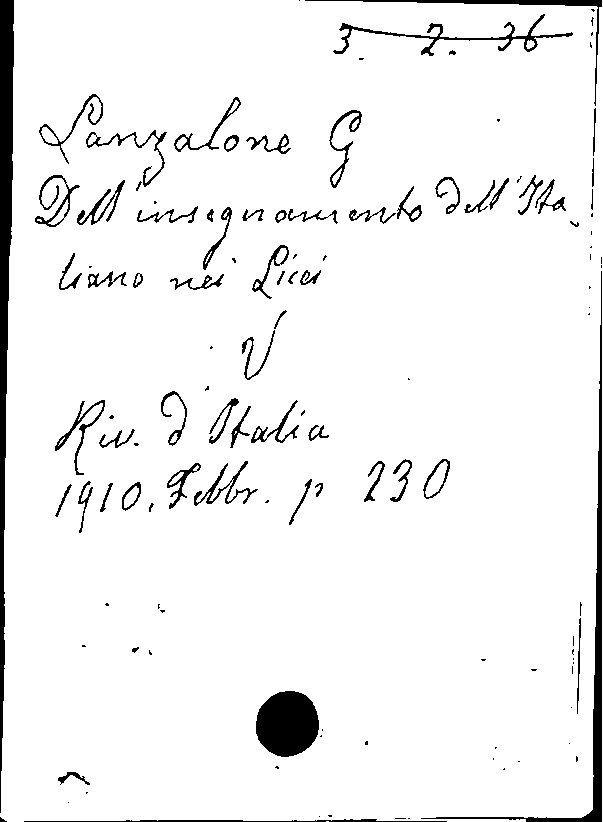 3. 2. 36
Lanzalone G
Dell'insegnamento dell'Ita-
liano nei Licei
V
Riv. d'Italia
1910. Febbr. p 230